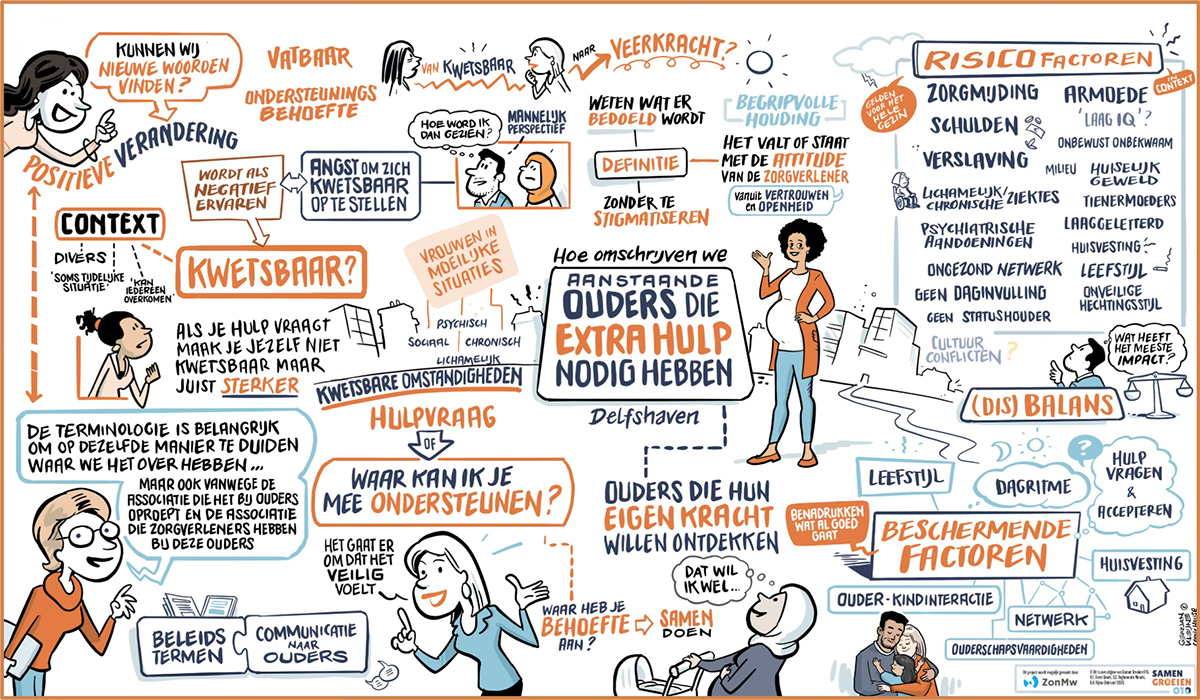 KUNNEN WIJ
NIEUWE WOORDEN
VINDEN?
POSITIEVE VERANDERING
VATBAAR
ONDERSTEUNINGS
BEHOEFTE
VAN KWETSBAAR
NAAR
VEERKRACHT?
HOE WORD IK
DAN GEZIEN?
MANNELIJK
PERSPECTIEF
WORDT ALS
NEGATIEF
ERVAREN
ANGST OM ZICH
KWETSBAAR
OP TE STELLEN
WETEN WAT ER
BEDOELD WORDT
DEFINITIE
ZONDER TE
STIGMATISEREN
BEGRIPVOLLE
HOUDING
HET VALT OF STAAT
MET DE ATTITUDE
VAN DE ZORGVERLENER
vanuit VERTROUWEN
en OPENHEID
RISICO FACTOREN
IN
CONTEXT
GELDEN
VOOR HET
HELE
GEZIN
ZORGMIJDING
SCHULDEN
VERSLAVING
LICHAMELIJK/
CHRONISCHE ZIEKTES
PSYCHIATRISCHE
AANDOENINGEN
ONGEZOND NETWERK
GEEN DAGINVULLING
GEEN STATUSHOUDER
CULTUUR
CONFLICTEN?
ARMOEDE
'LAAG IQ'?
ONBEWUST ONBEKWAAM
MILIEU
HUISELIJK
GEWELD
TIENERMOEDERS
LAAGGELETTERD
HUISVESTING
LEEFSTIJL
ONVEILIGE
HECHTINGSSTIJL
CONTEXT
DIVERS
'SOMS TIJDELIJKE
SITUATIE'
'KAN
IEDEREEN
OVERKOMEN'
KWETSBAAR?
ALS JE HULP VRAAGT
MAAK JE JEZELF NIET
KWETSBAAR MAAR
JUIST STERKER
VROUWEN IN
MOEILIJKE
SITUATIES
PSYCHISCH
SOCIAAL
CHRONISCH
LICHAMELIJK
KWETSBARE OMSTANDIGHEDEN
HULPVRAAG
OF
WAAR KAN IK JE
MEE ONDERSTEUNEN?
Hoe omschrijven we
AANSTAANDE
OUDERS DIE
EXTRA HULP
NODIG HEBBEN
Delfshaven
WAT HEEFT
HET MEESTE
IMPACT?
(DIS) BALANS
DE TERMINOLOGIE IS BELANGRIJK
OM OP DEZELFDE MANIER TE DUIDEN
WAAR WE HET OVER HEBBEN...
MAAR OOK VANWEGE DE
ASSOCIATIE DIE HET BIJ OUDERS
OPROEPT EN DE ASSOCIATIE
DIE ZORGVERLENERS HEBBEN
BIJ DEZE OUDERS
BELEIDS
TERMEN
COMMUNICATIE
NAAR
OUDERS
HET GAAT ER
OM DAT HET
VEILIG
VOELT
OUDERS DIE HUN
EIGEN KRACHT
WILLEN ONTDEKKEN
DAT WIL
IK WEL...
WAAR HEB JE
BEHOEFTE
AAN?
SAMEN
DOEN
LEEFSTIJL
DAGRITME
?
HULP
VRAGEN
&
ACCEPTEREN
BENADRUKKEN
WAT AL GOED
GAAT
BESCHERMENDE
FACTOREN
HUISVESTING
OUDER-KINDINTERACTIE
NETWERK
OUDERSCHAPSVAARDIGHEDEN
Dit project wordt mogelijk gemaakt door:
ZonMw
SAMEN
GROEIEN
010